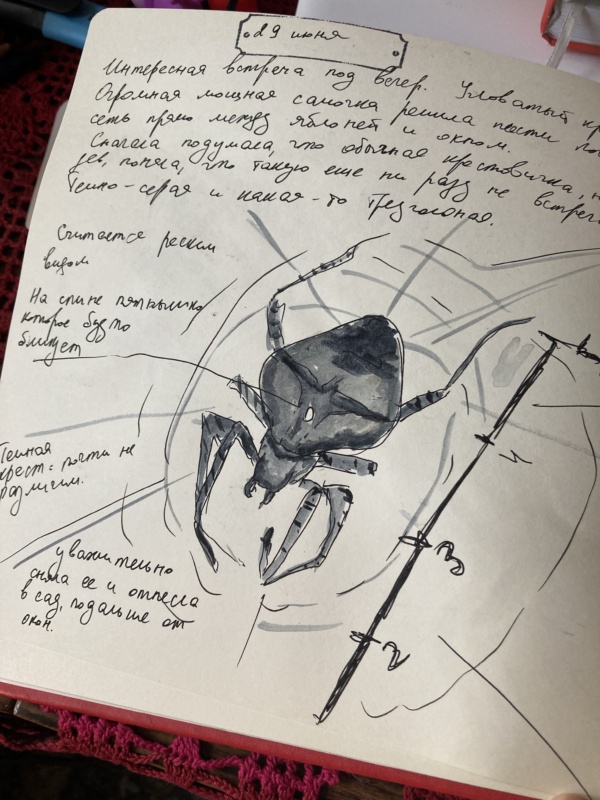 29 июня
Интересная встреча под вечер. Угловатый кр
Огромная мощная самочка решила плести ло
сеть прямо между яблоней и окном.
Сначала подумала, что обычная крестовичка, н
дев, поняла, что такую еще ни разу не встреч
Темно-серая и какая-то треугольная.
Считается редким
видом
На спине пятнышко
которое будто
бликует
Темная
крест - почти не
различим.
уважительно
сняла ее и отнесла
в сад, подальше от
окон.
1
3
2